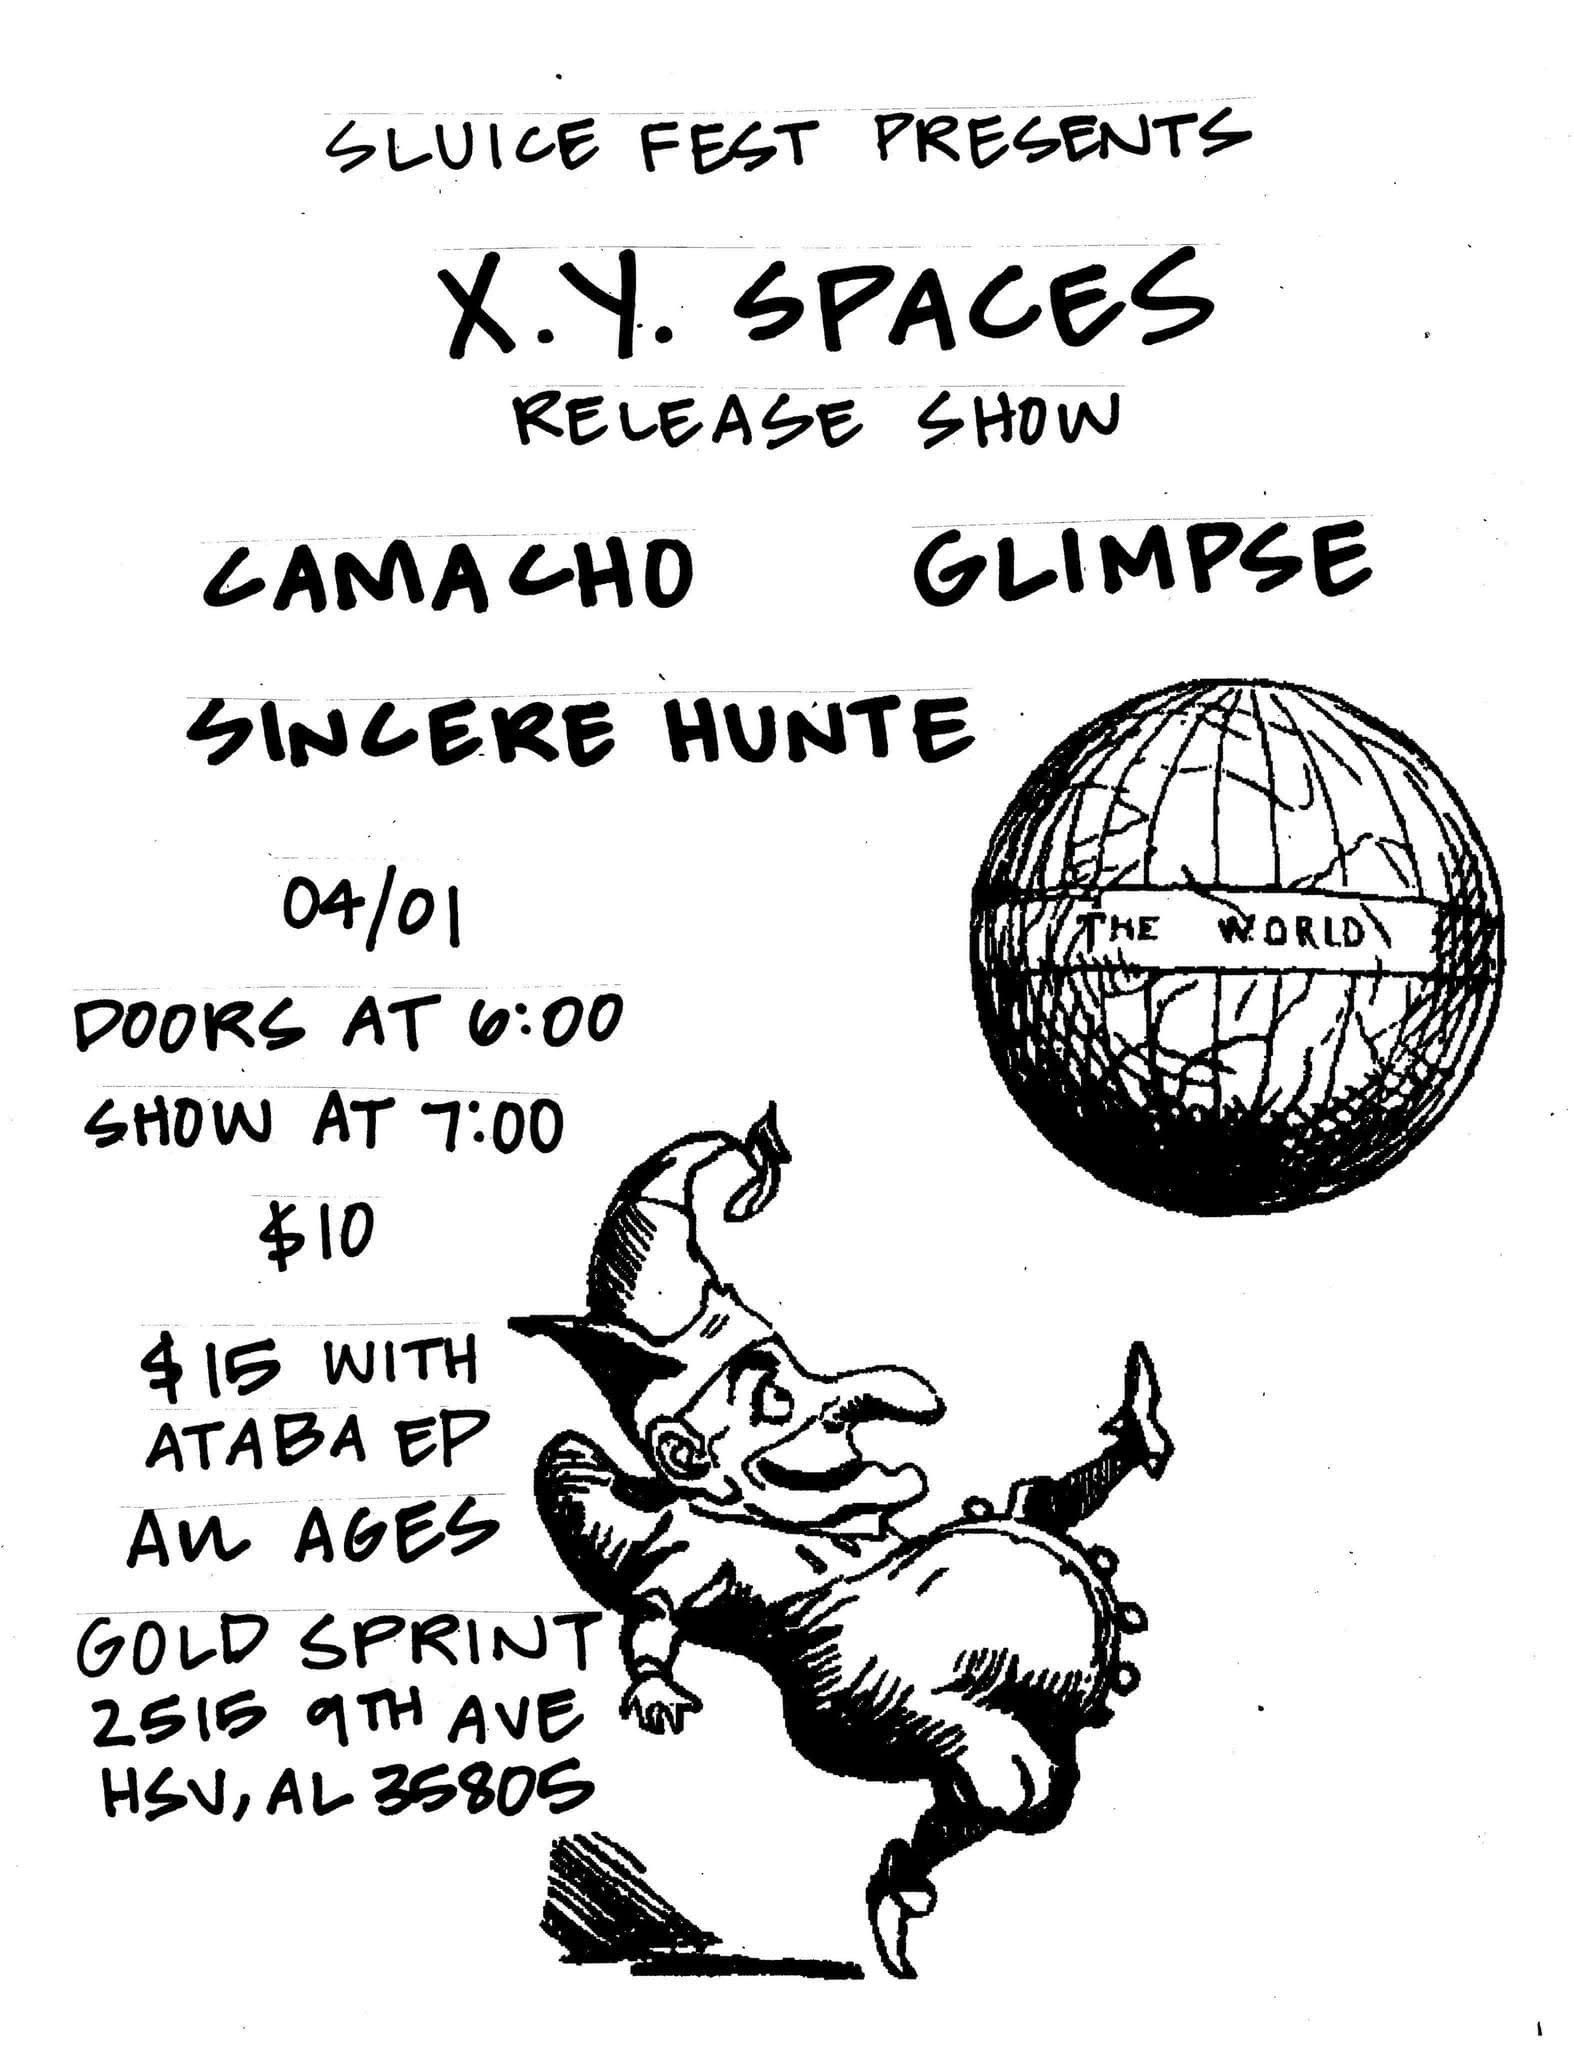 SLUICE FEST PRESENTS
X.Y. SPACES
RELEASE SHOW
CAMACHO GLIMPSE
SINCERE HUNTE
THE WORLD
04/01
DOORS AT 6:00
SHOW AT 7:00
$10
$15 WITH
ATABA EP
ALL AGES
GOLD SPRINT
2515 9TH AVE
HSV, AL 35805